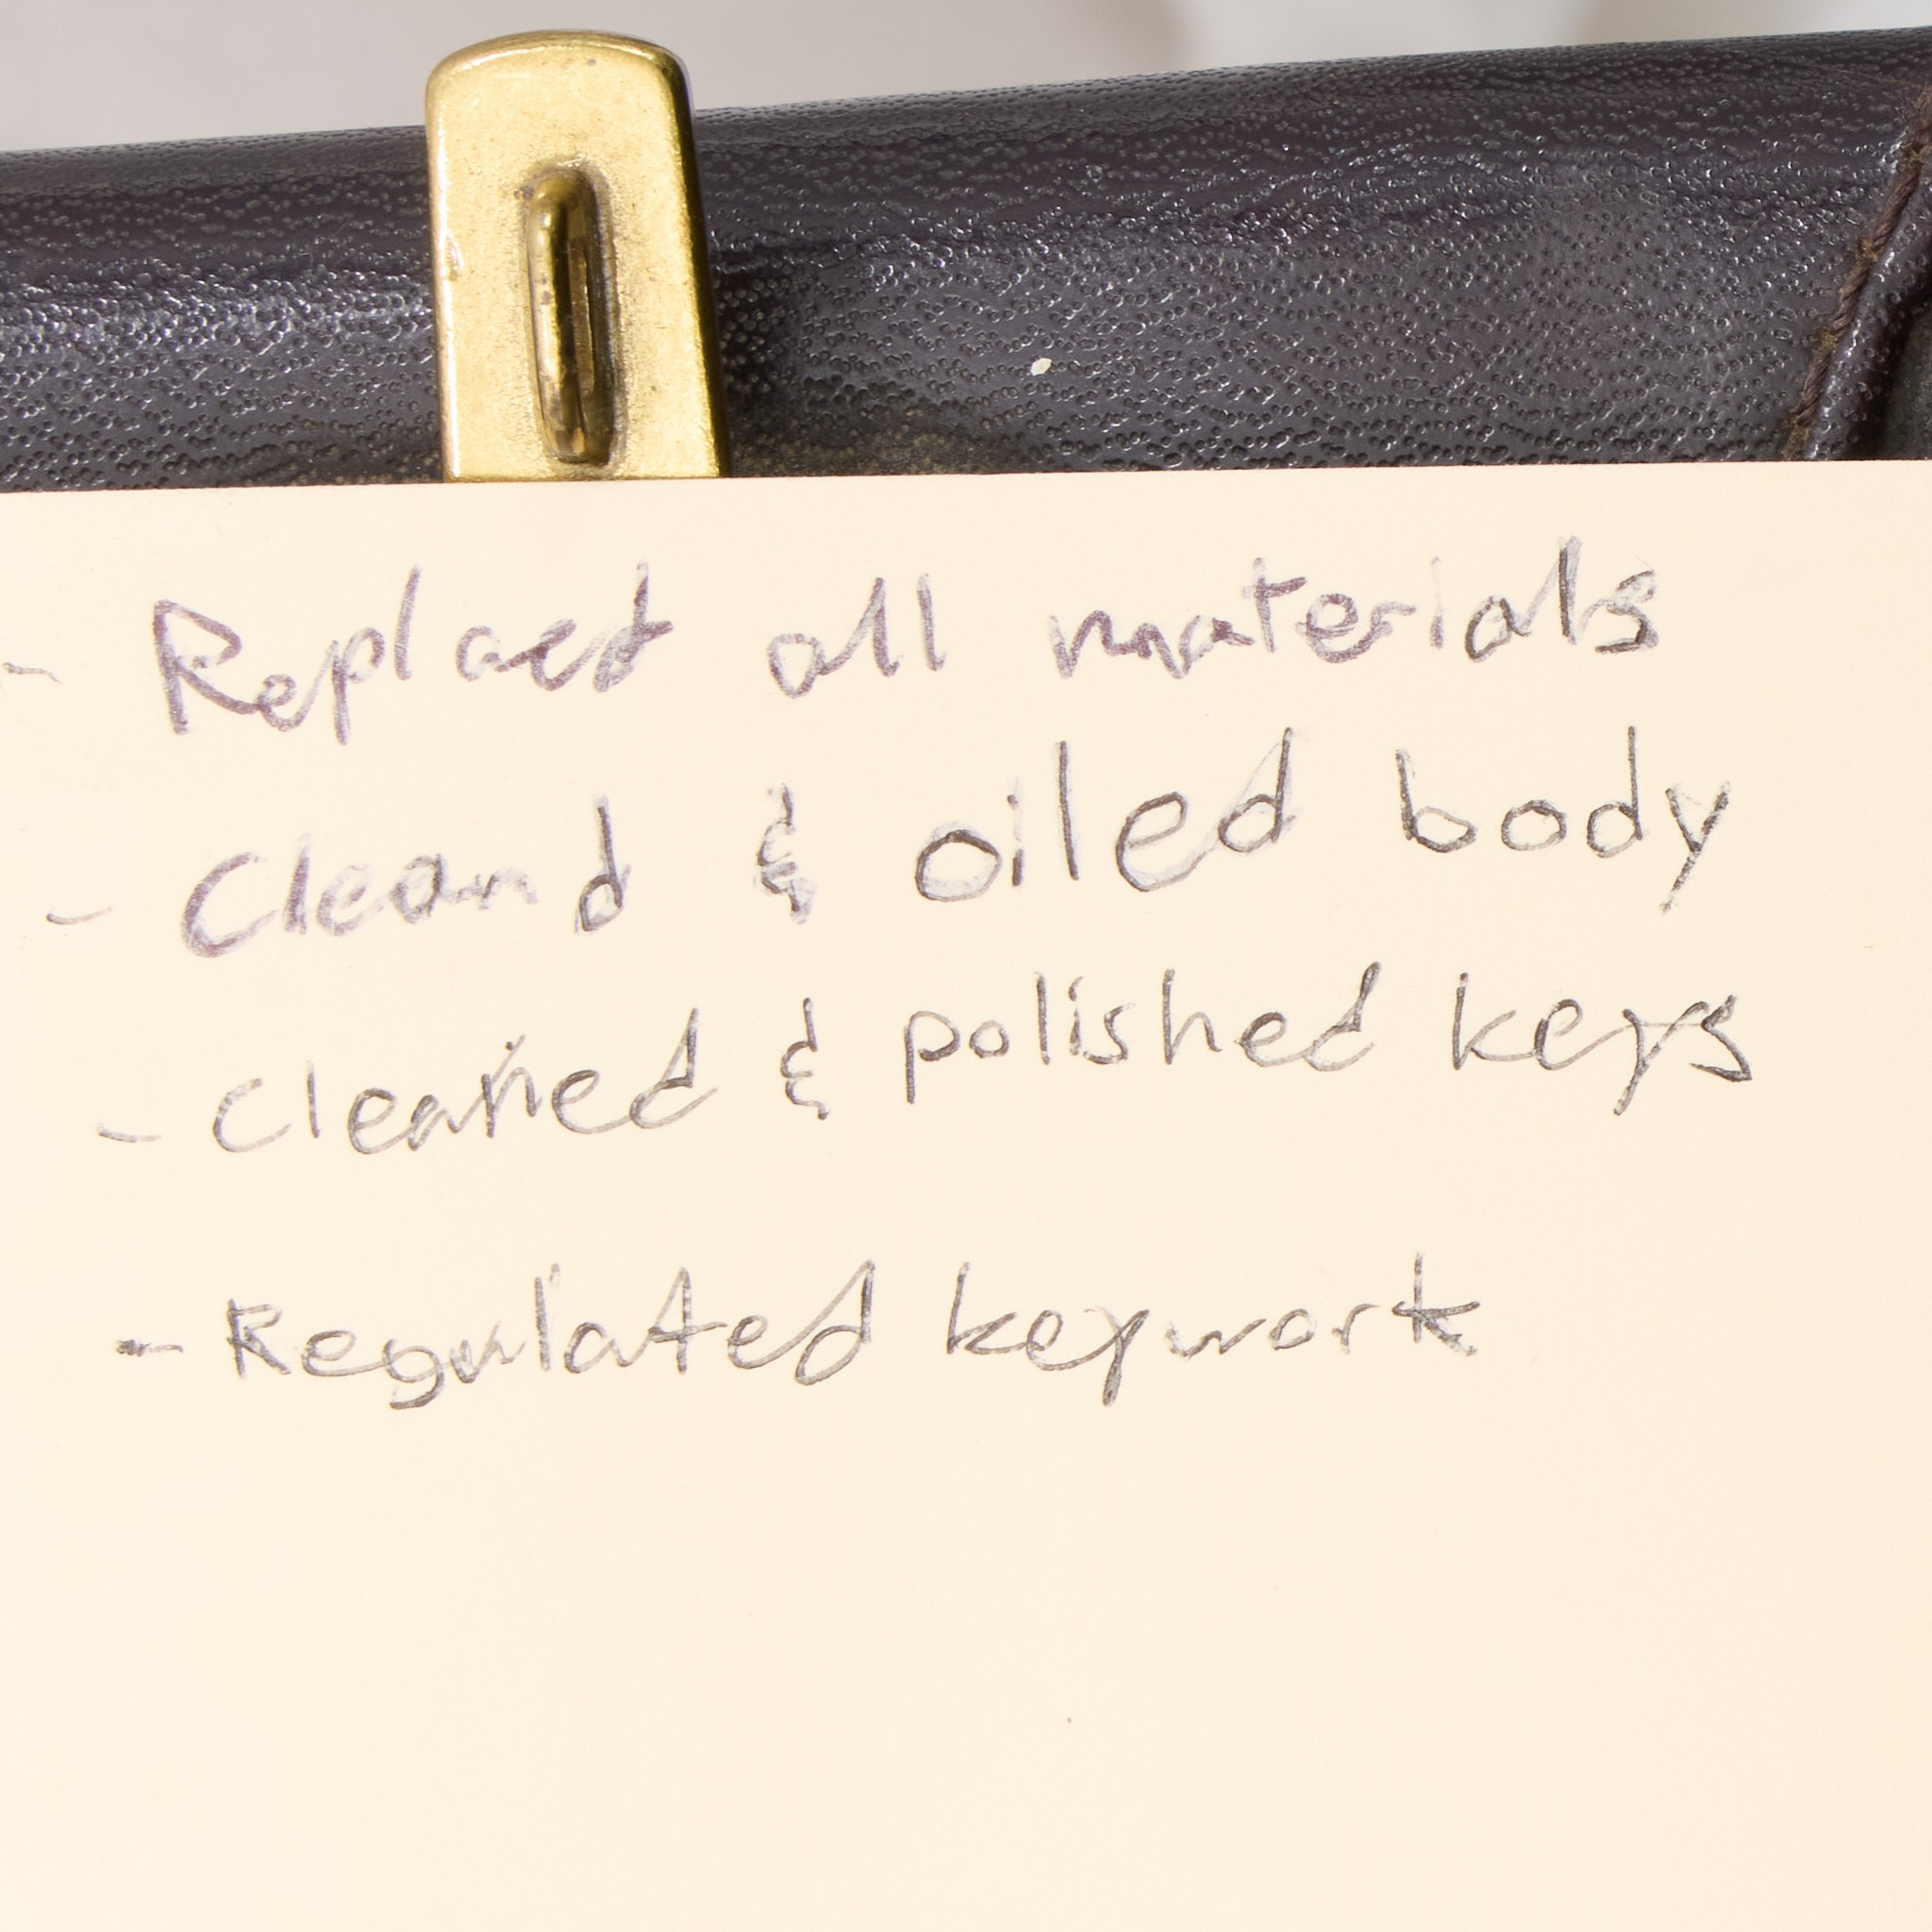 - Replaced all materials
- Cleand & oiled body
- Cleaned & polished keys
- Regulated keywork